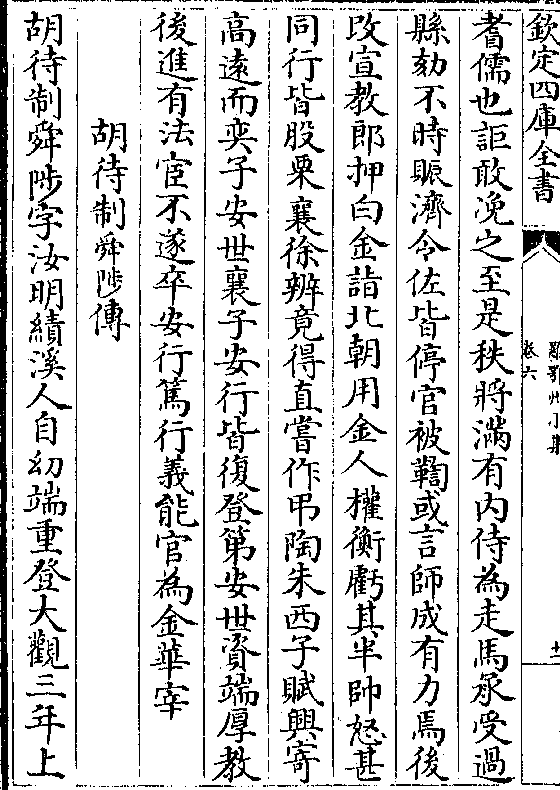 欽定四庫全書
羅鄂州小集
卷六
十一
耆儒也詎敢浼之至是秩將滿有内侍為走馬承受過
縣劾不時賑濟令佐皆停官被鞫或言師成有力焉後
改宣教郎押白金詣北朝用金人權衡虧其半帥怒甚
同行皆股栗襄徐辨竟得直嘗作弔陶朱西子賦興寄
高遠而奕子安世襄子安行皆復登第安世資端厚教
後進有法宦不遂卒安行篤行義能官為金華宰
胡待制舜陟傳
胡待制舜陟字汝明績溪人自幼端重登大觀三年上